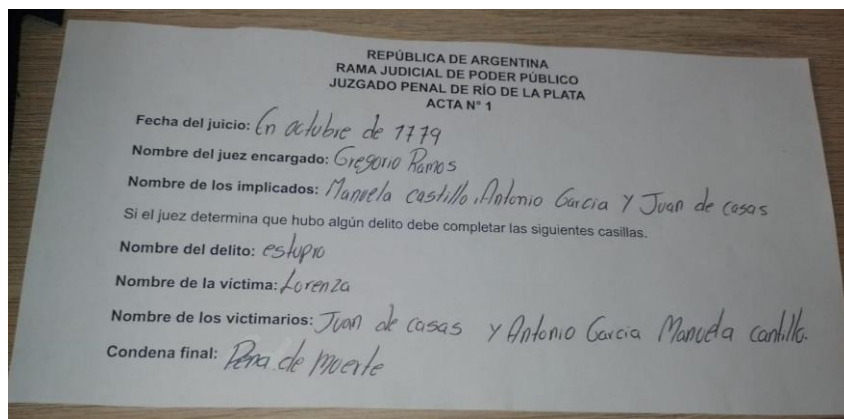 REPÚBLICA DE ARGENTINA
RAMA JUDICIAL DE PODER PÚBLICO
JUZGADO PENAL DE RÍO DE LA PLATA
ACTA N° 1
Fecha del juicio: En octubre de 1779
Nombre del juez encargado: Gregorio Ramos
Nombre de los implicados: Manuela castillo, Antonio Garcia Y Juan de casas
Si el juez determina que hubo algún delito debe completar las siguientes casillas.
Nombre del delito: estupro
Nombre de la víctima: Lorenza
Nombre de los victimarios: Juan de casas y Antonio Garcia Manuela cantillo.
Condena final: Pena de muerte